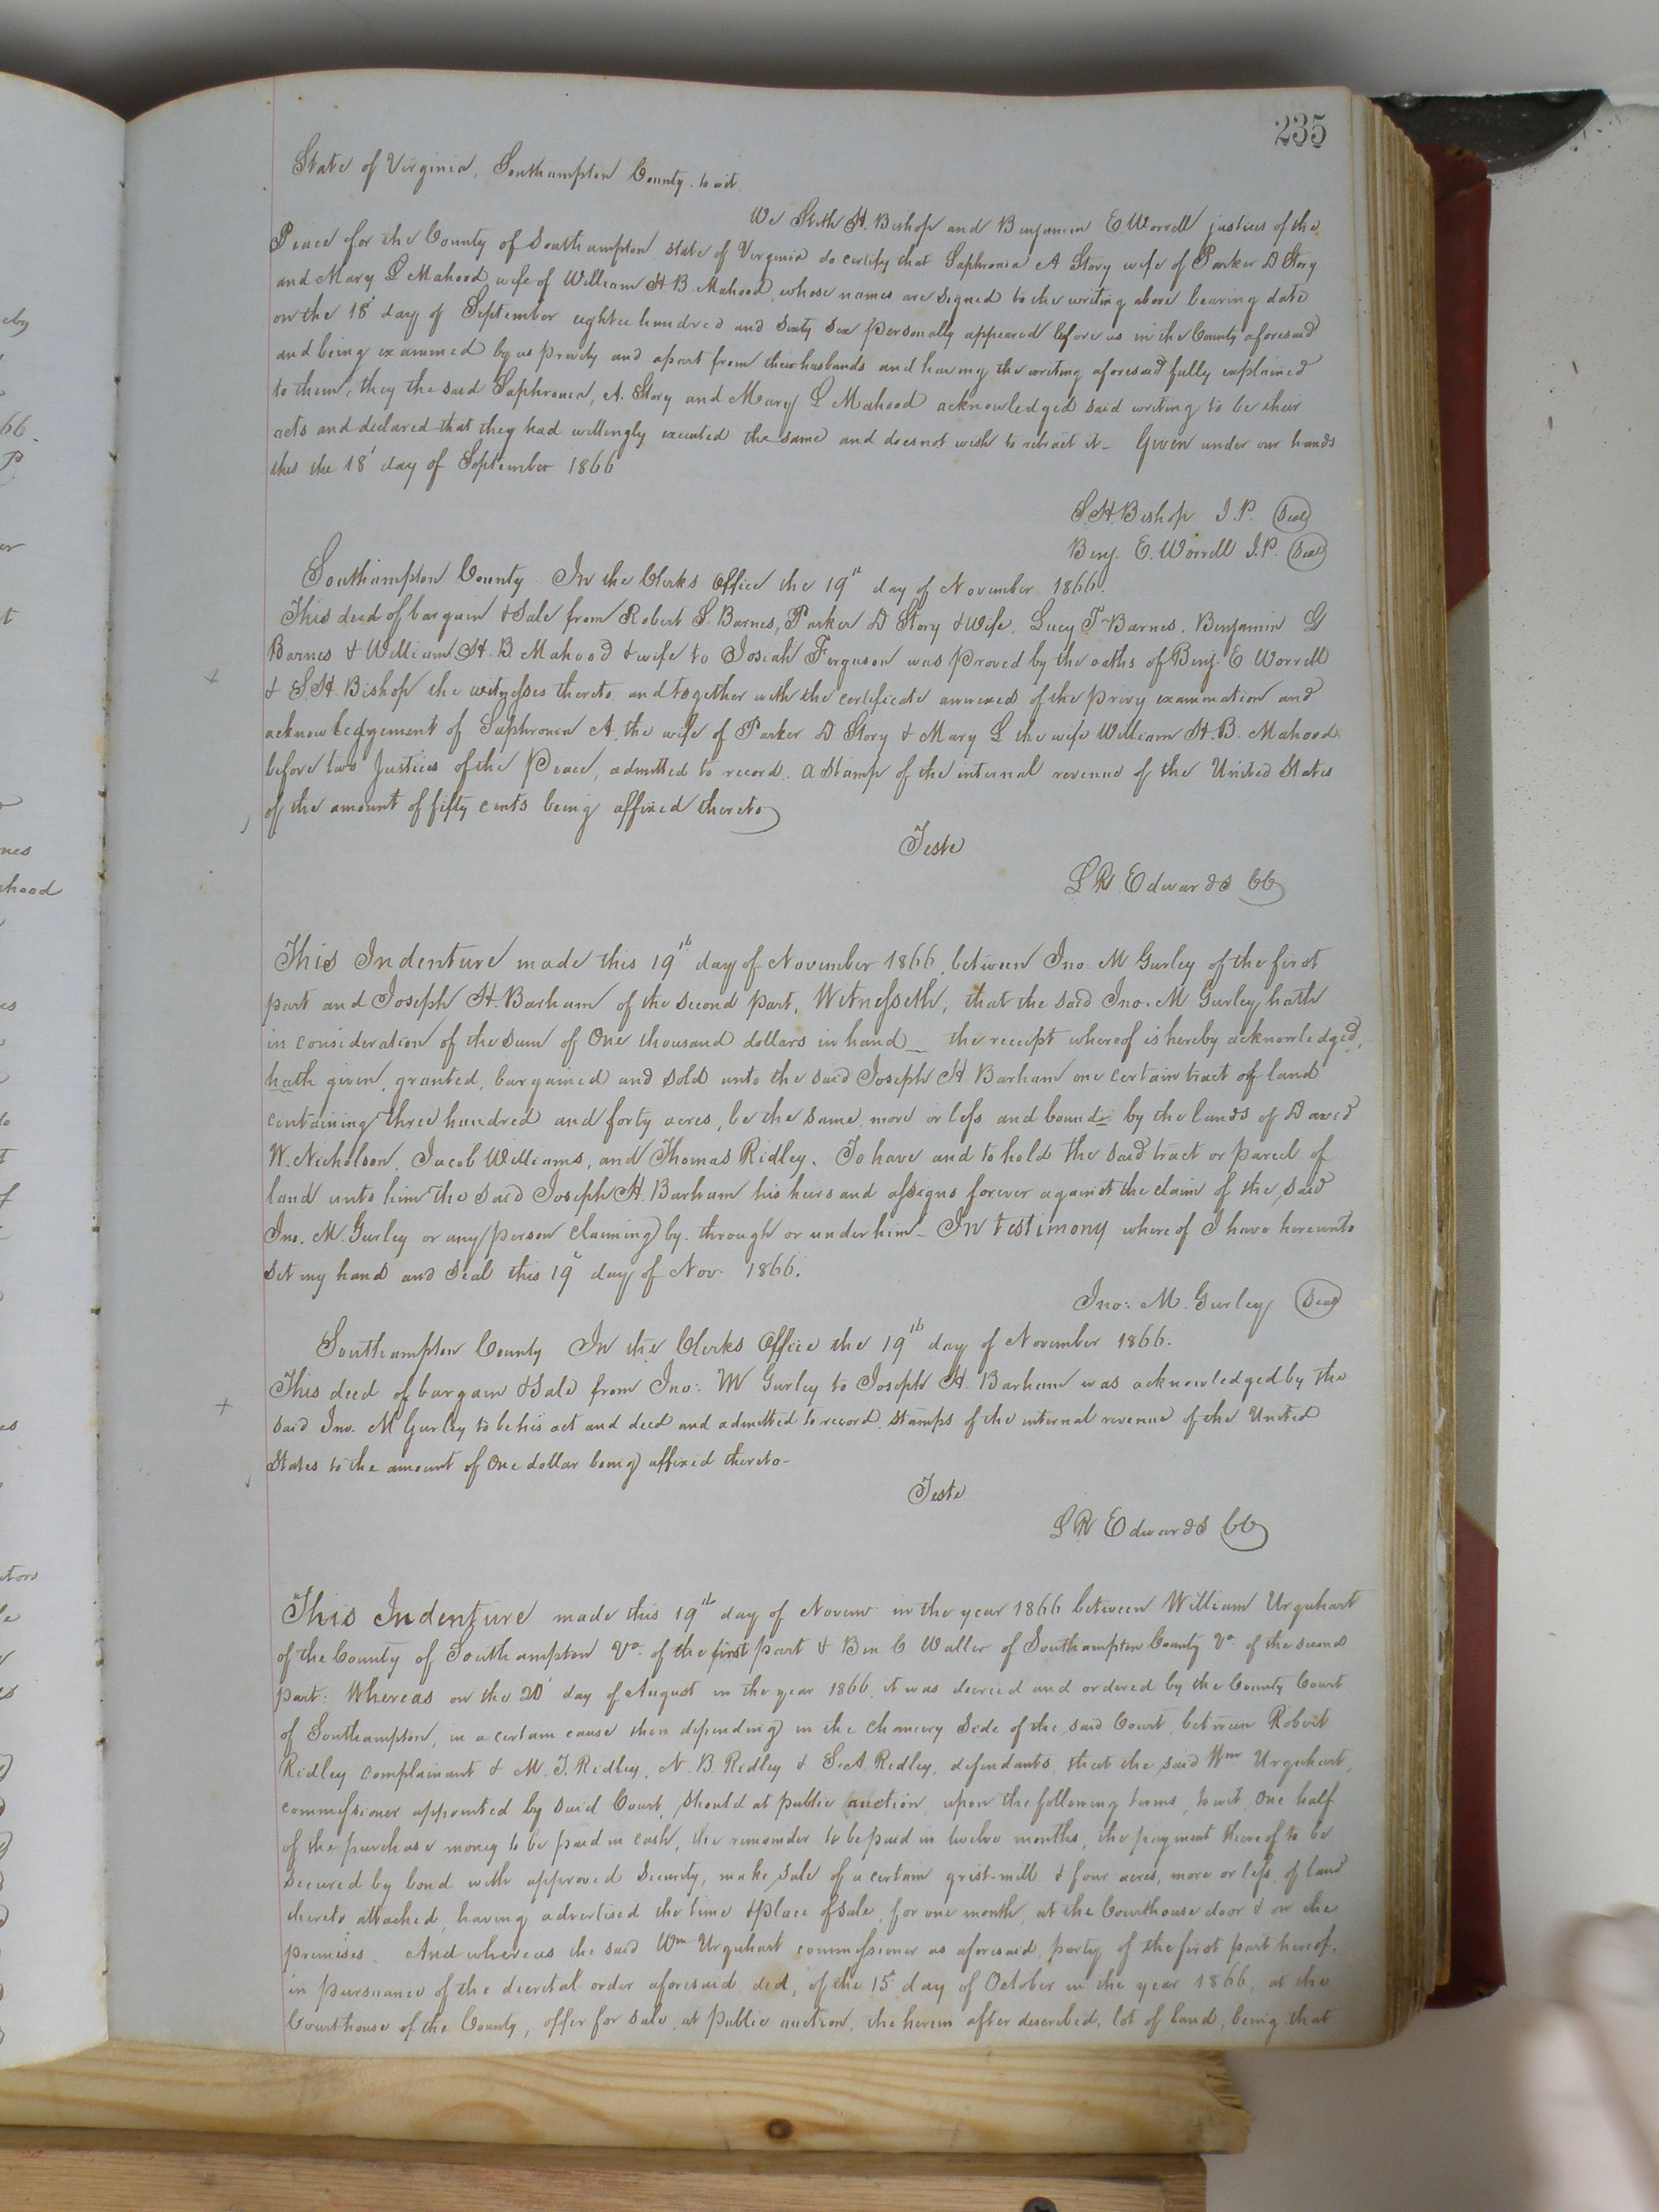 235
State of Virginia, Southampton County. to wit.
We Sketh H. Bishop and Benjamin E. Worrell justices of the
Peace for the County of Southampton state of Virginia do certify that Saphronia A Story wife of Parker D Story
and Mary L Mahood wife of William H. B. Mahood, whose names are signed to the writing above bearing date
on the 18' day of September eightee hundred and sixty six personally appeared before us in the County aforesaid
and being examined by us privily and apart from their husbands and having the writing aforesaid fully explained
to them, they the said Saphronia, A. Story and Mary L Mahood acknowledged said writing to be their
acts and declared that they had willingly executed the same and does not wish to retract it - Given under our hands
this the 18' day of September 1866
S. H. Bishop J. P. Seal
Benj. E. Worrell J. P. Seal
Southampton County. In the Clerks Office the 19th day of November 1866.
This deed of bargain & Sale from Robert S. Barnes, Parker D Story & Wife, Lucy T Barnes, Benjamin G
Barnes & William H. B. Mahood & wife to Josiah Ferguson was proved by the oaths of Benj. E Worrell
& S H. Bishop the witnesses thereto and together with the certificate annexed of the privy examination and
acknowledgement of Saphronia A. the wife of Parker D Story & Mary L the wife William H. B. Mahood
before two Justices of the Peace, admitted to record. a Stamp of the internal revenue of the United States
of the amount of fifty cents being affixed thereto
Teste
L R Edwards CC
This Indenture made this 19th day of November 1866, between Jno. M Gurley of the first
part and Joseph H. Barham of the second part, Witnesseth, that the said Jno. M Gurley hath
in consideration of the sum of One thousand dollars in hand _ the receipt whereof is hereby acknowledged,
hath given, granted, bargained and sold unto the said Joseph H Barham one certain tract of land
containing three hundred and forty acres, be the same more or less and bound by the lands of David
W. Nicholson, Jacob Williams, and Thomas Ridley. To have and to hold the said tract or parcel of
land unto him the said Joseph H. Barham his heirs and assigns forever against the claim of the said
Jno. M. Gurley or any person claiming by, through or under him - In testimony whereof I have hereunto
set my hand and seal this 19' day of Nov. 1866.
Jno: M. Gurley Seal
Southampton County In the Clerks Office the 19th day of November 1866.
This deed of bargain & Sale from Jno: M Gurley to Joseph H. Barham was acknowledged by the
said Jno. M Gurley to be his act and deed and admitted to record. stamps of the internal revenue of the United
States to the amount of One dollar being affixed thereto -
Teste
L R Edwards CC
This Indenture made this 19th day of Novemr in the year 1866 between William Urquhart
of the County of Southampton Va. of the first part & Ben. C Waller of Southampton County Va. of the second
part: Whereas on the 20' day of August in the year 1866, it was decreed and ordered by the County Court
of Southampton, in a certain cause then depending in the Chancery Side of the said Court between Robert
Ridley complainant & M. T. Ridley, N. B. Ridley & S. A Ridley, defendants, that the said Wm Urquhart,
commissioner appointed by said Court, should at public auction upon the following terms, to wit, One half
of the purchase money to be paid in cash, the remainder to be paid in twelve months, the payment thereof to be
secured by bond with approved security, make sale of a certain grist-mill & four acres, more or less, of land
thereto attached, having advertised the time & place of sale, for one month, at the Courthouse door & on the
premises. And whereas the said Wm Urquhart commissioner as aforesaid, party of the first part hereof,
in pursuance of the decretal order aforesaid did, of the 15' day of October in the year 1866, at the
Courthouse of the County, offer for sale, at public auction, the herein after described, lot of land, being that